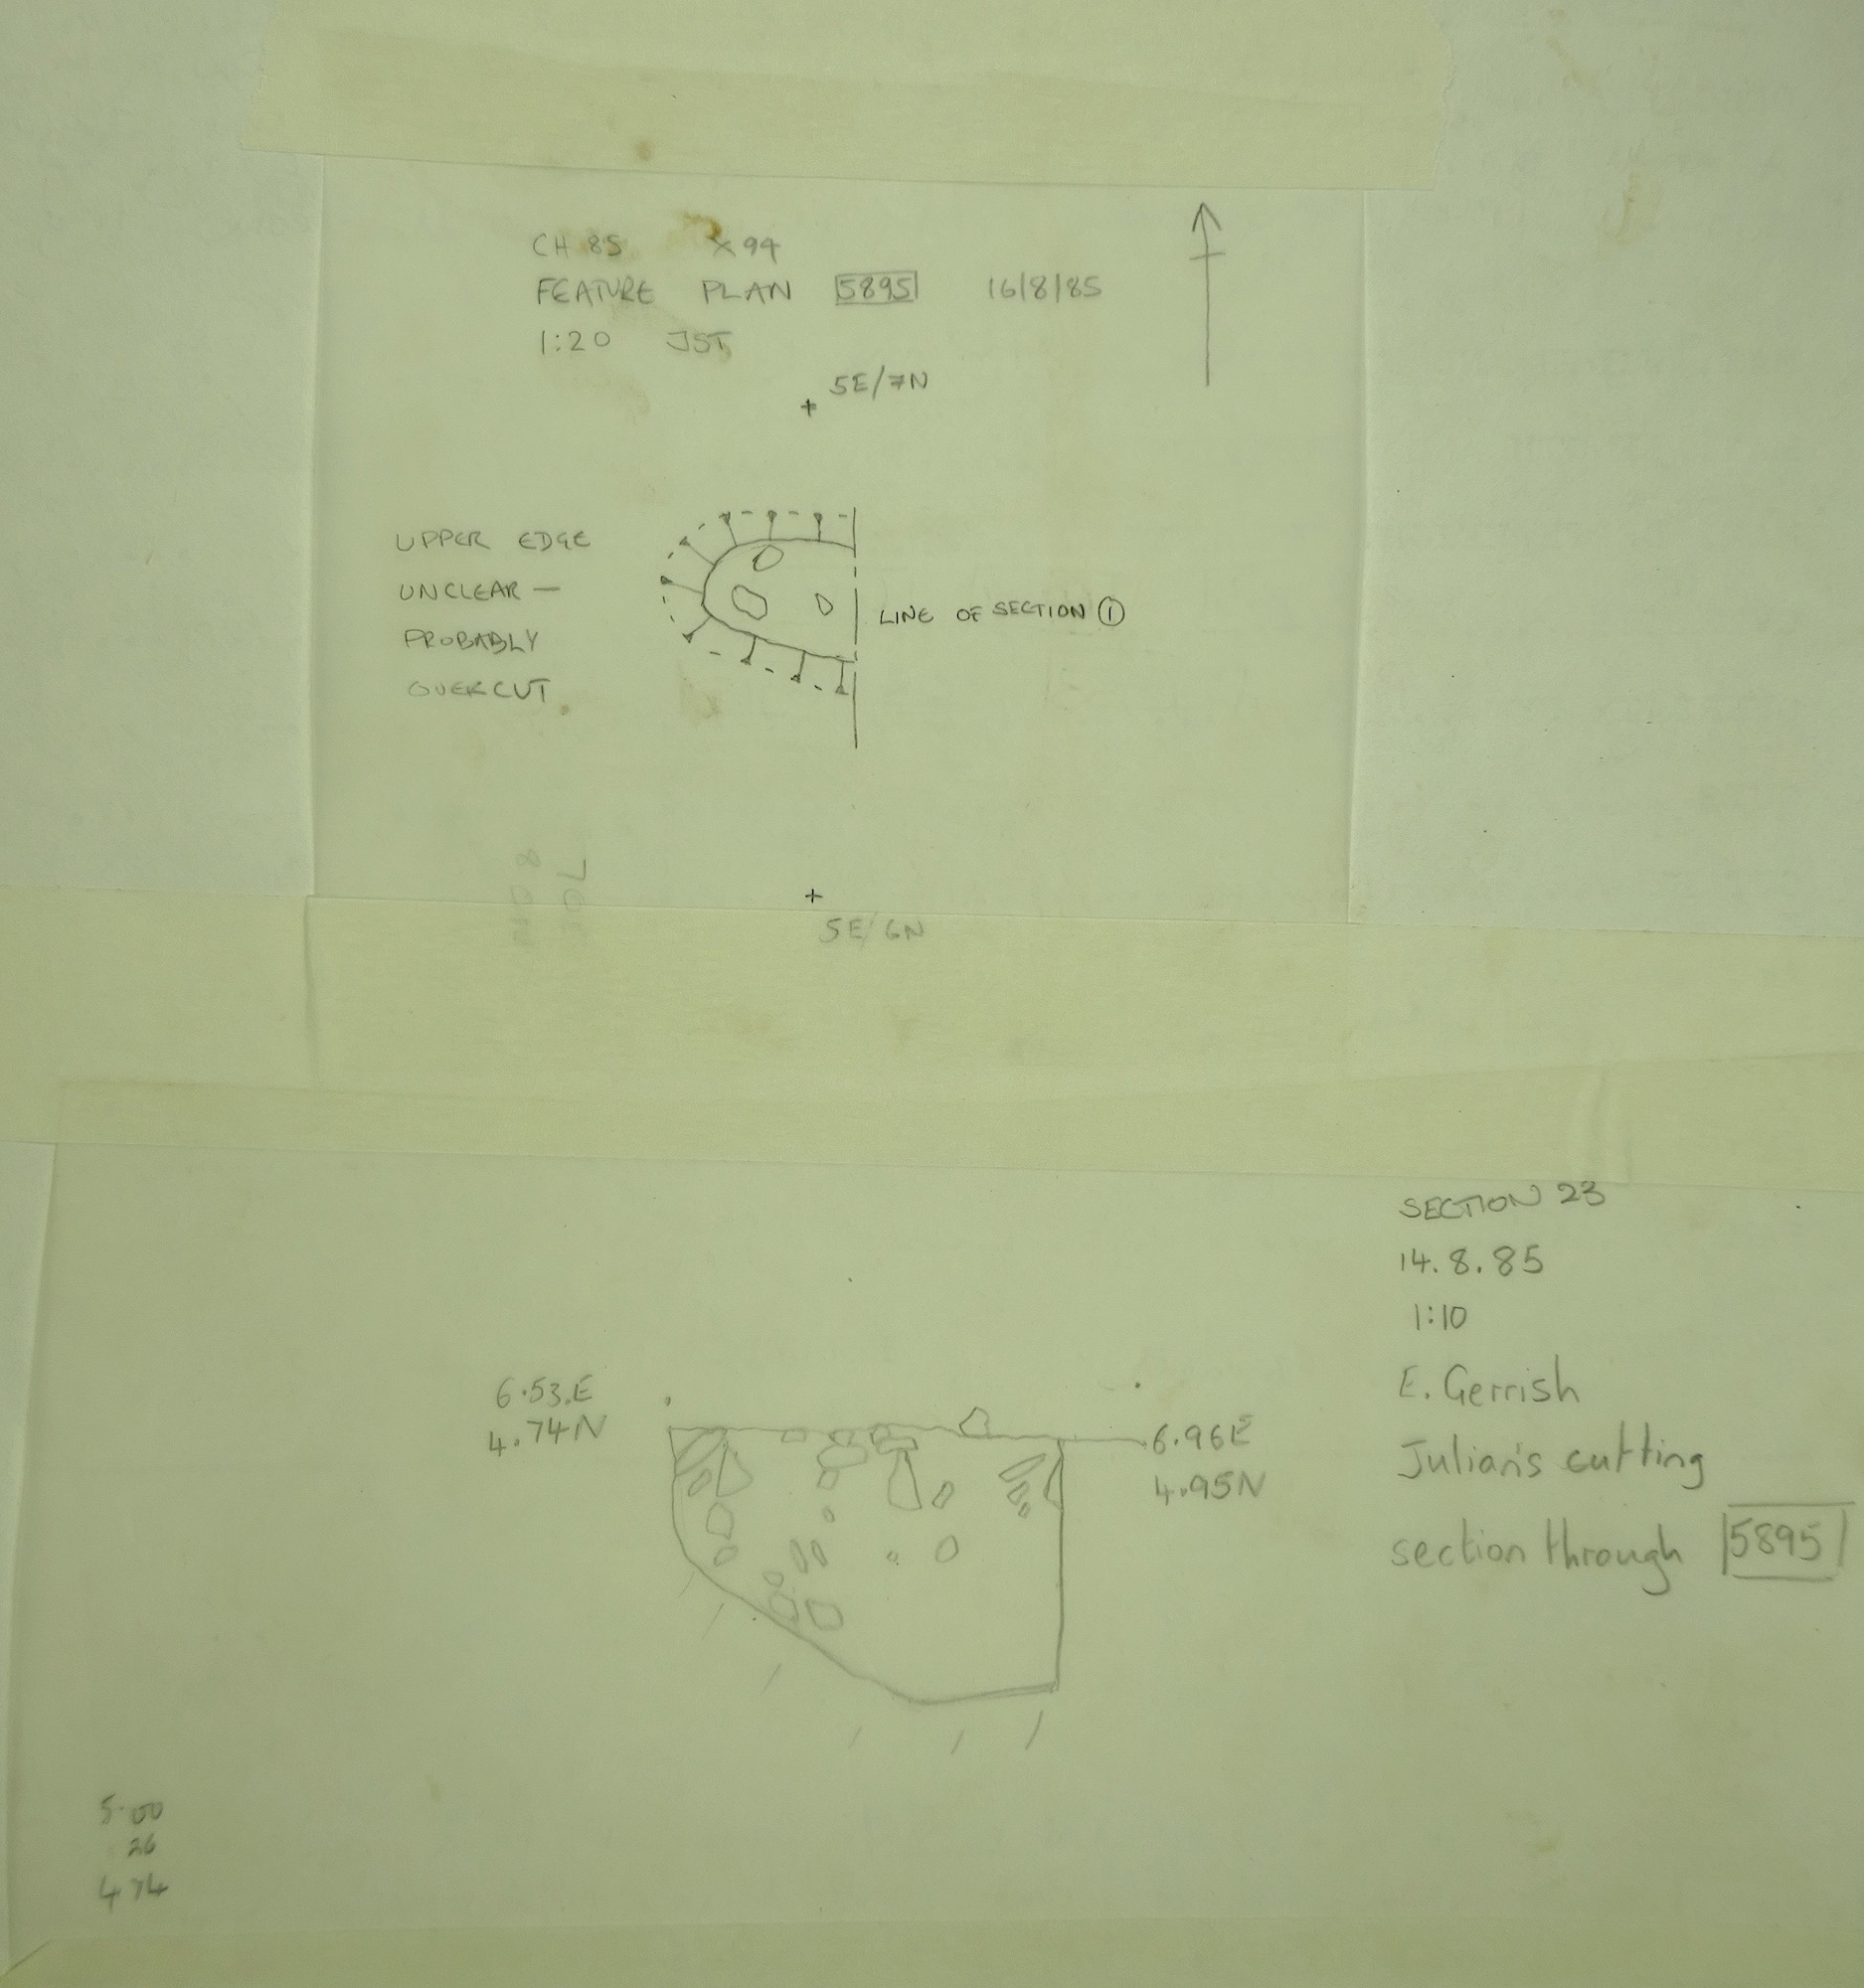 CH 85 X94
FEATURE PLAN 5895 16/8/85
1:20 JST
5E/7N
UPPER EDGE
UNCLEAR —
PROBABLY
OVERCUT
LINE OF SECTION ①
5E/6N
SECTION 23
14.8.85
1:10
E. Gerrish
Julian's cutting
section through 5895
6.53.E
4.74N
6.96E
4.95N
5.00
26
4 74